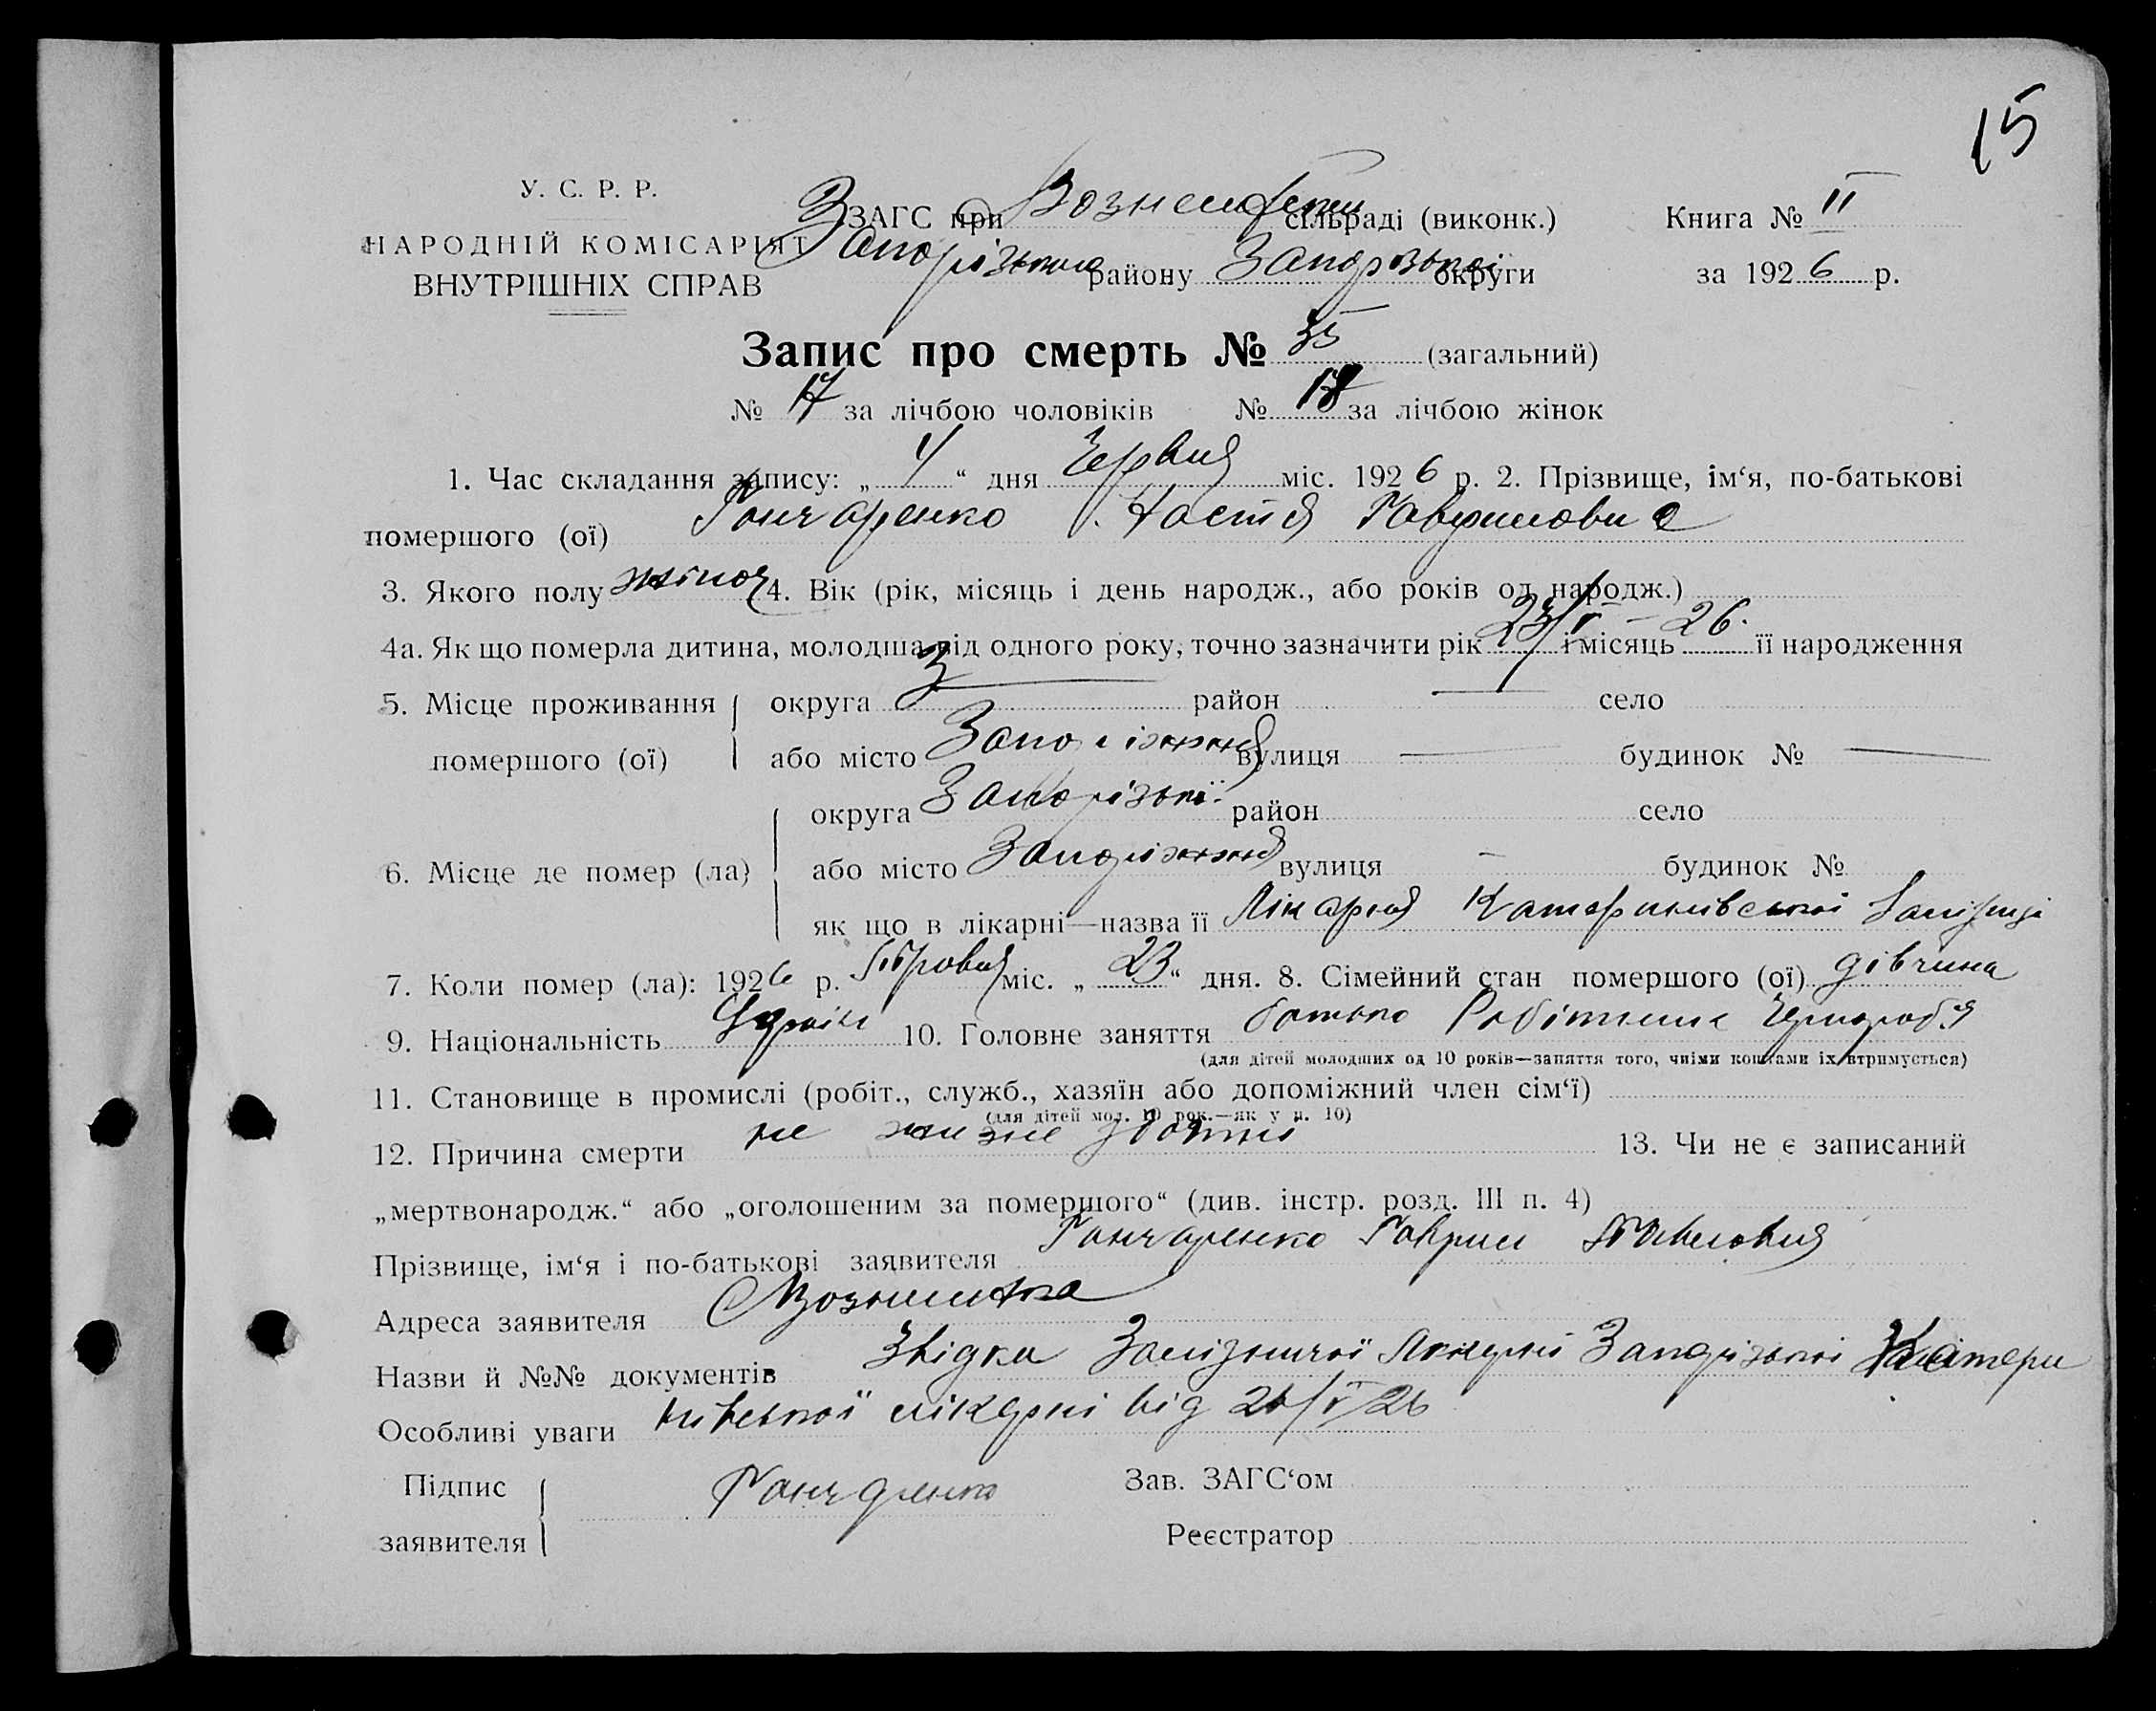 15
У. С. Р. Р.
НАРОДНІЙ КОМІСАРІЯТ
ВНУТРІШНІХ СПРАВ
ЗАГС при сільраді (виконк.) Книга № II
району округи за 1926 р.
Запис про смерть № 35 (загальний)
№ 17 за лічбою чоловіків № 18 за лічбою жінок
1. Час складання запису: „ 4 “ дня Червня міс. 1926 р. 2. Прізвище, ім‘я, по-батькові
помершого (ої) Гончаренко Настя
3. Якого полу жіноч 4. Вік (рік, місяць і день народж., або років од народж.)
4а. Як що померла дитина, молодша від одного року, точно зазначити рік 23/V – 26. і місяць її народження
5. Місце проживання помершого (ої) округа З район — село
або місто Запоріжжя вулиця — будинок № —
6. Місце де помер (ла) округа Запорізькі район село
або місто Запоріжжя вулиця – будинок №
як що в лікарні—назва її Лікарня Катеринівської
7. Коли помер (ла): 1926 р. міс. „ 23 “ дня. 8. Сімейний стан помершого (ої) дівчина
9. Національність Україн 10. Головне заняття батько Робітник
(для дітей молодших од 10 років—заняття того, чиїми коштами їх втримується)
11. Становище в промислі (робіт., служб., хазяїн або допоміжний член сім‘ї)
(для дітей мол. 10 рок.—як у п. 10)
12. Причина смерти не 13. Чи не є записаний
„мертвонародж.“ або „оголошеним за помершого“ (див. інстр. розд. III п. 4)
Прізвище, ім‘я і по-батькові заявителя Гончаренко Гаврил
Адреса заявителя
Назви й №№ документів Звідка Залізничої Лікерні Запорізької Катери
Особливі уваги нівської лікерні від 26/V 26
Підпис заявителя Гончаренко Зав. ЗАГС‘ом
Реєстратор